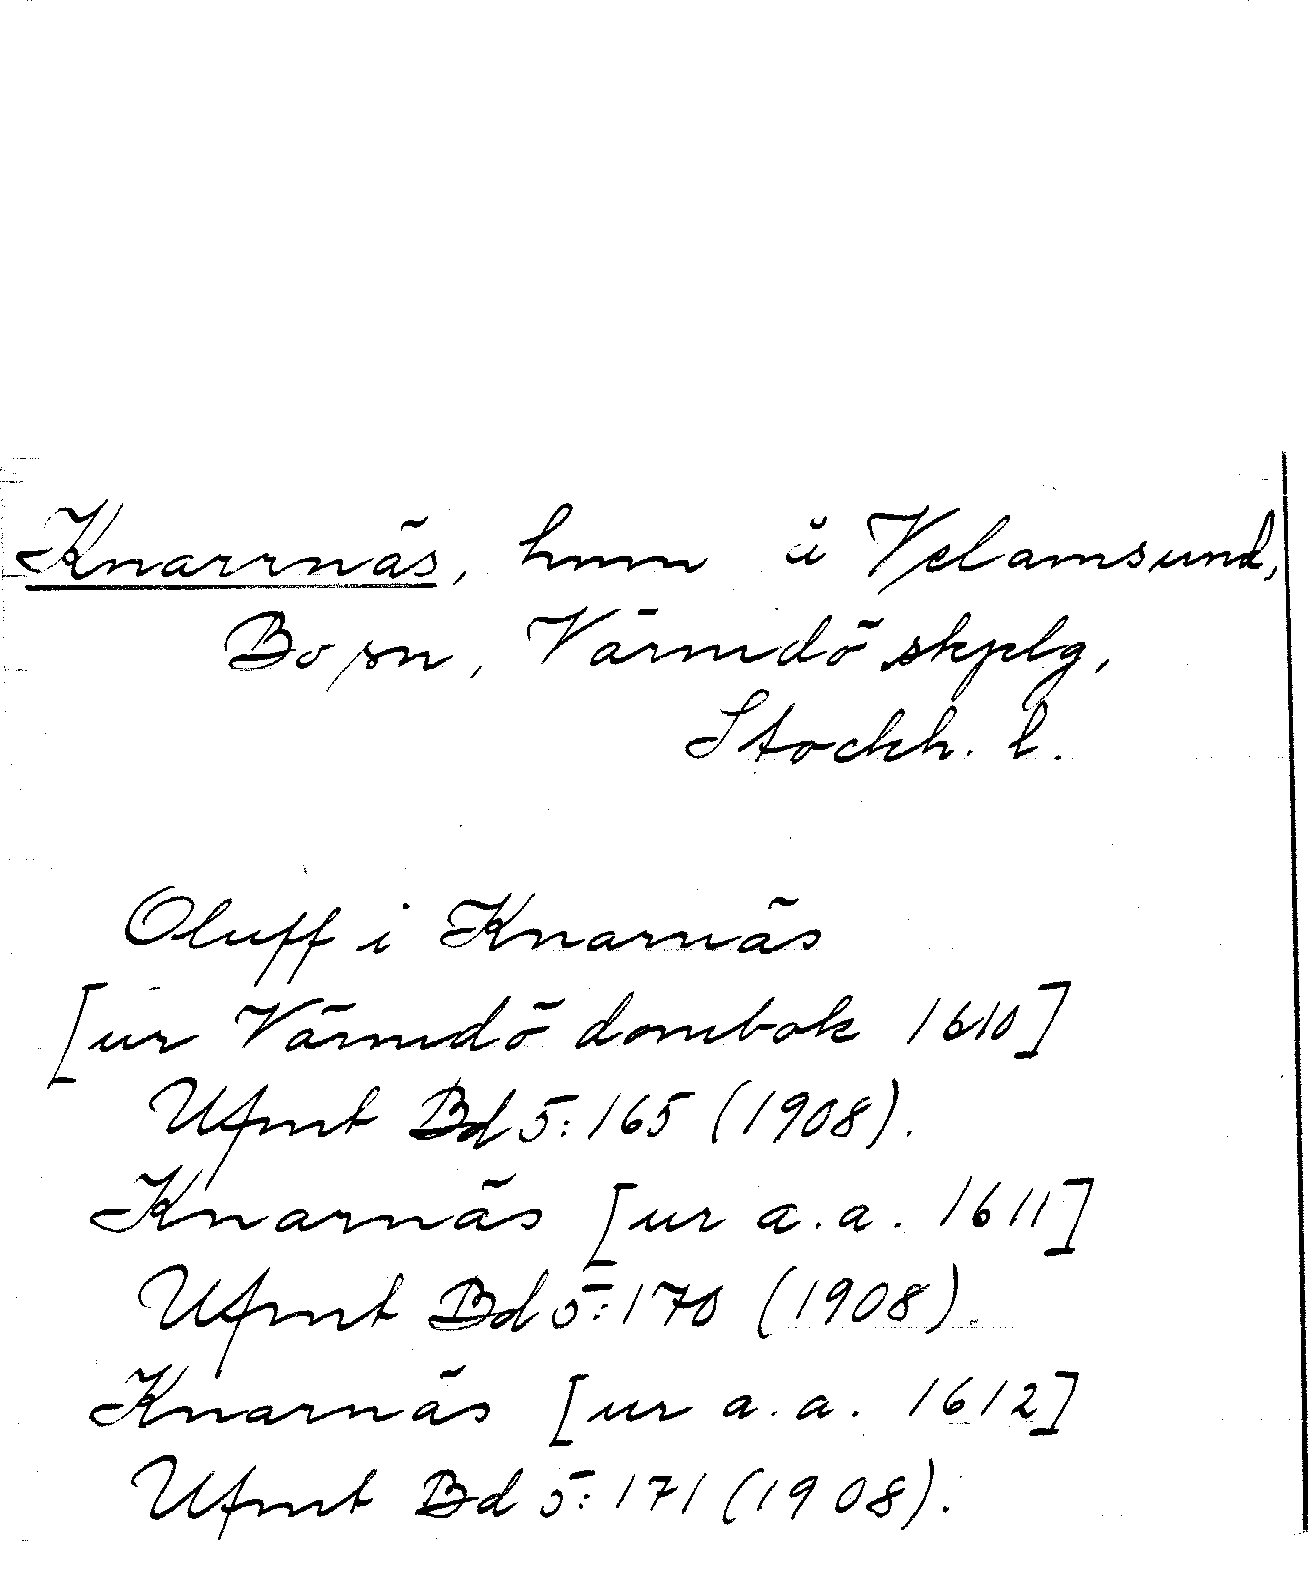 Knarrnäs, hmn å Velamsund,
Bo sn, Värmdö skplg,
Stockh. l.
Oluff i Knarnäs
[ur Värmdö dombok 1610]
Ufmt Bd 5:165 (1908).
Knarnäs [ur a.a. 1611]
Ufmt Bd 5:170 (1908).
Knarnäs [ur a.a. 1612]
Ufmt Bd 5:171 (1908).